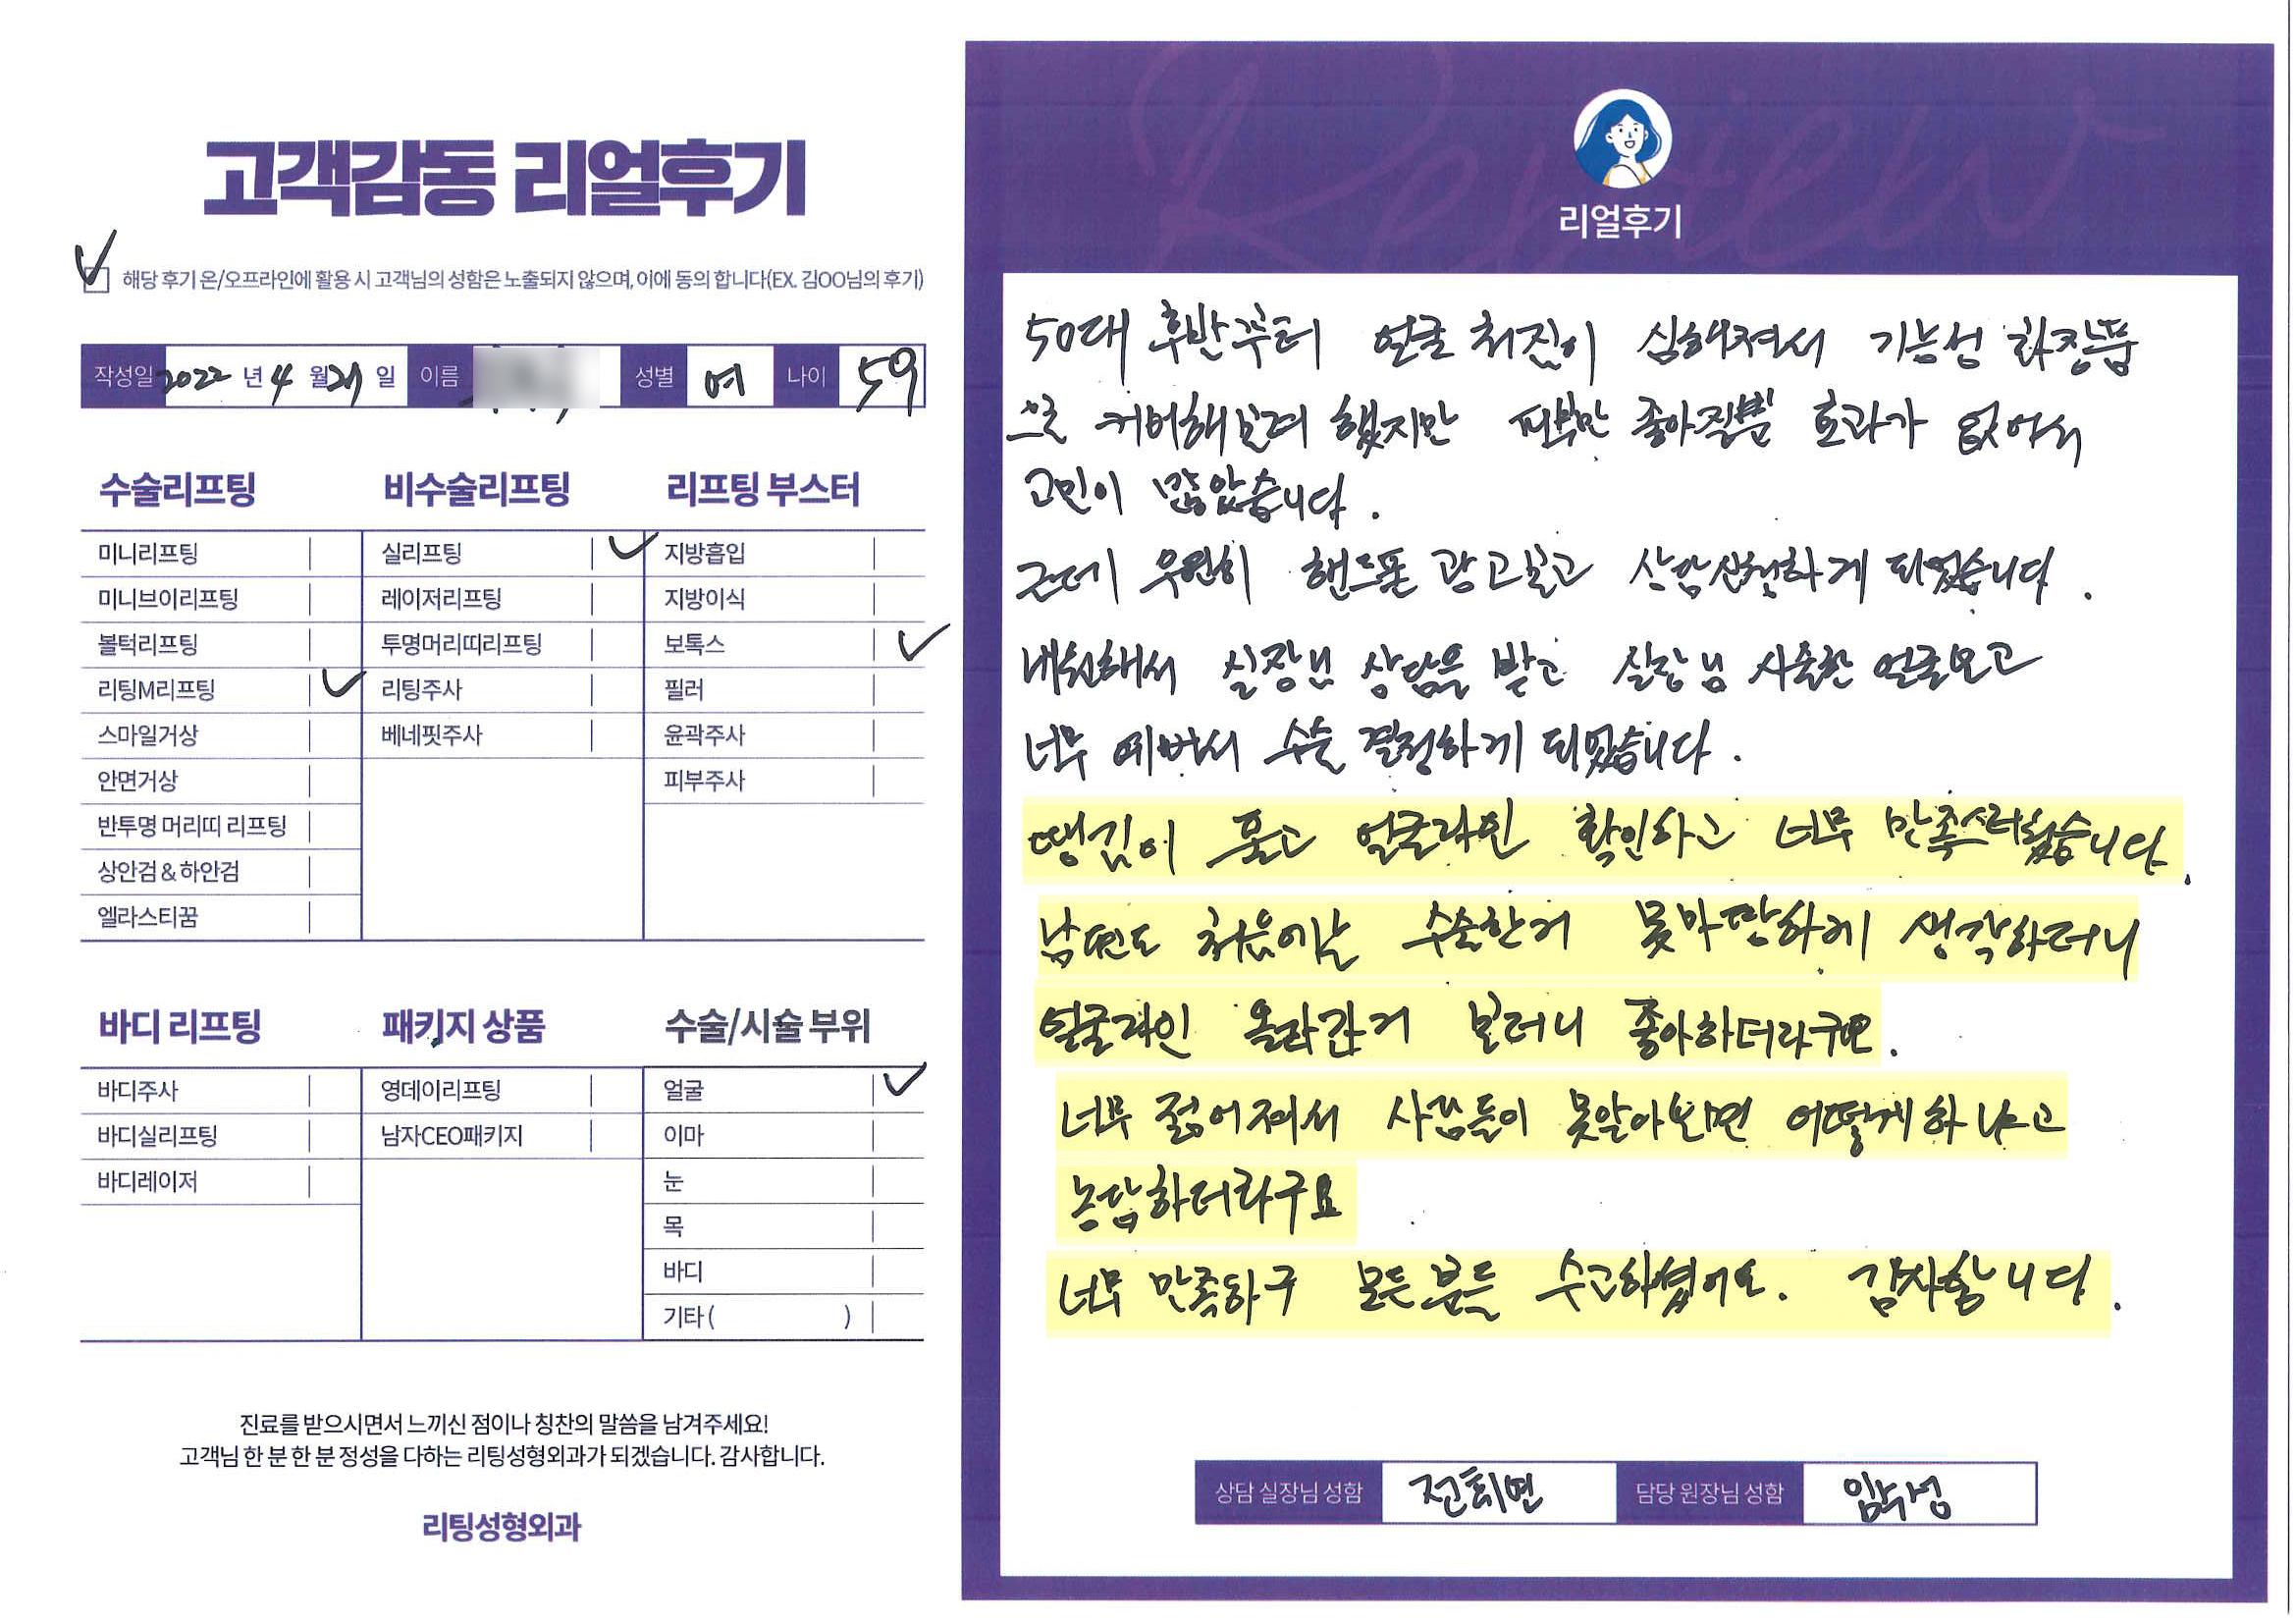 고객감동 리얼후기
해당 후기 온/오프라인에 활용 시 고객님의 성함은 노출되지 않으며, 이에 동의 합니다(EX. 김OO님의 후기)
작성일 2022 년 4 월 21 일 이름 성별 여 나이 59
수술리프팅
미니리프팅
미니브이리프팅
볼턱리프팅
리팅M리프팅
스마일거상
안면거상
반투명 머리띠 리프팅
상안검 & 하안검
엘라스티꿈
비수술리프팅
실리프팅
레이저리프팅
투명머리띠리프팅
리팅주사
베네핏주사
리프팅 부스터
지방흡입
지방이식
보톡스
필러
윤곽주사
피부주사
바디 리프팅
바디주사
바디실리프팅
바디레이저
패키지 상품
영데이리프팅
남자CEO패키지
수술/시술 부위
얼굴
이마
눈
목
바디
기타 ( )
진료를 받으시면서 느끼신 점이나 칭찬의 말씀을 남겨주세요!
고객님 한 분 한 분 정성을 다하는 리팅성형외과가 되겠습니다. 감사합니다.
리팅성형외과
Review
리얼후기
50대 후반부터 얼굴 처짐이 심해져서 기능성 화장품
으로 커버해보려 했지만 피부만 좋아질뿐 효과가 없어서
고민이 많았습니다.
근데 우연히 핸드폰 광고보고 상담신청하게 되었습니다.
내원해서 실장님 상담을 받고 실장님 시술한 얼굴보고
너무 예뻐서 수술 결정하게 되었습니다.
땡김이 풀고 얼굴라인 확인하고 너무 만족스러웠습니다.
남편도 처음에날 수술한거 못마땅하게 생각하더니
얼굴라인 올라간거 보더니 좋아하더라구요.
너무 젊어져서 사람들이 못알아보면 어떻게하냐고
농담하더라구요
너무 만족하구 모든분들 수고하셨어요. 감사합니다.
상담 실장님 성함 전희연 담당 원장님 성함